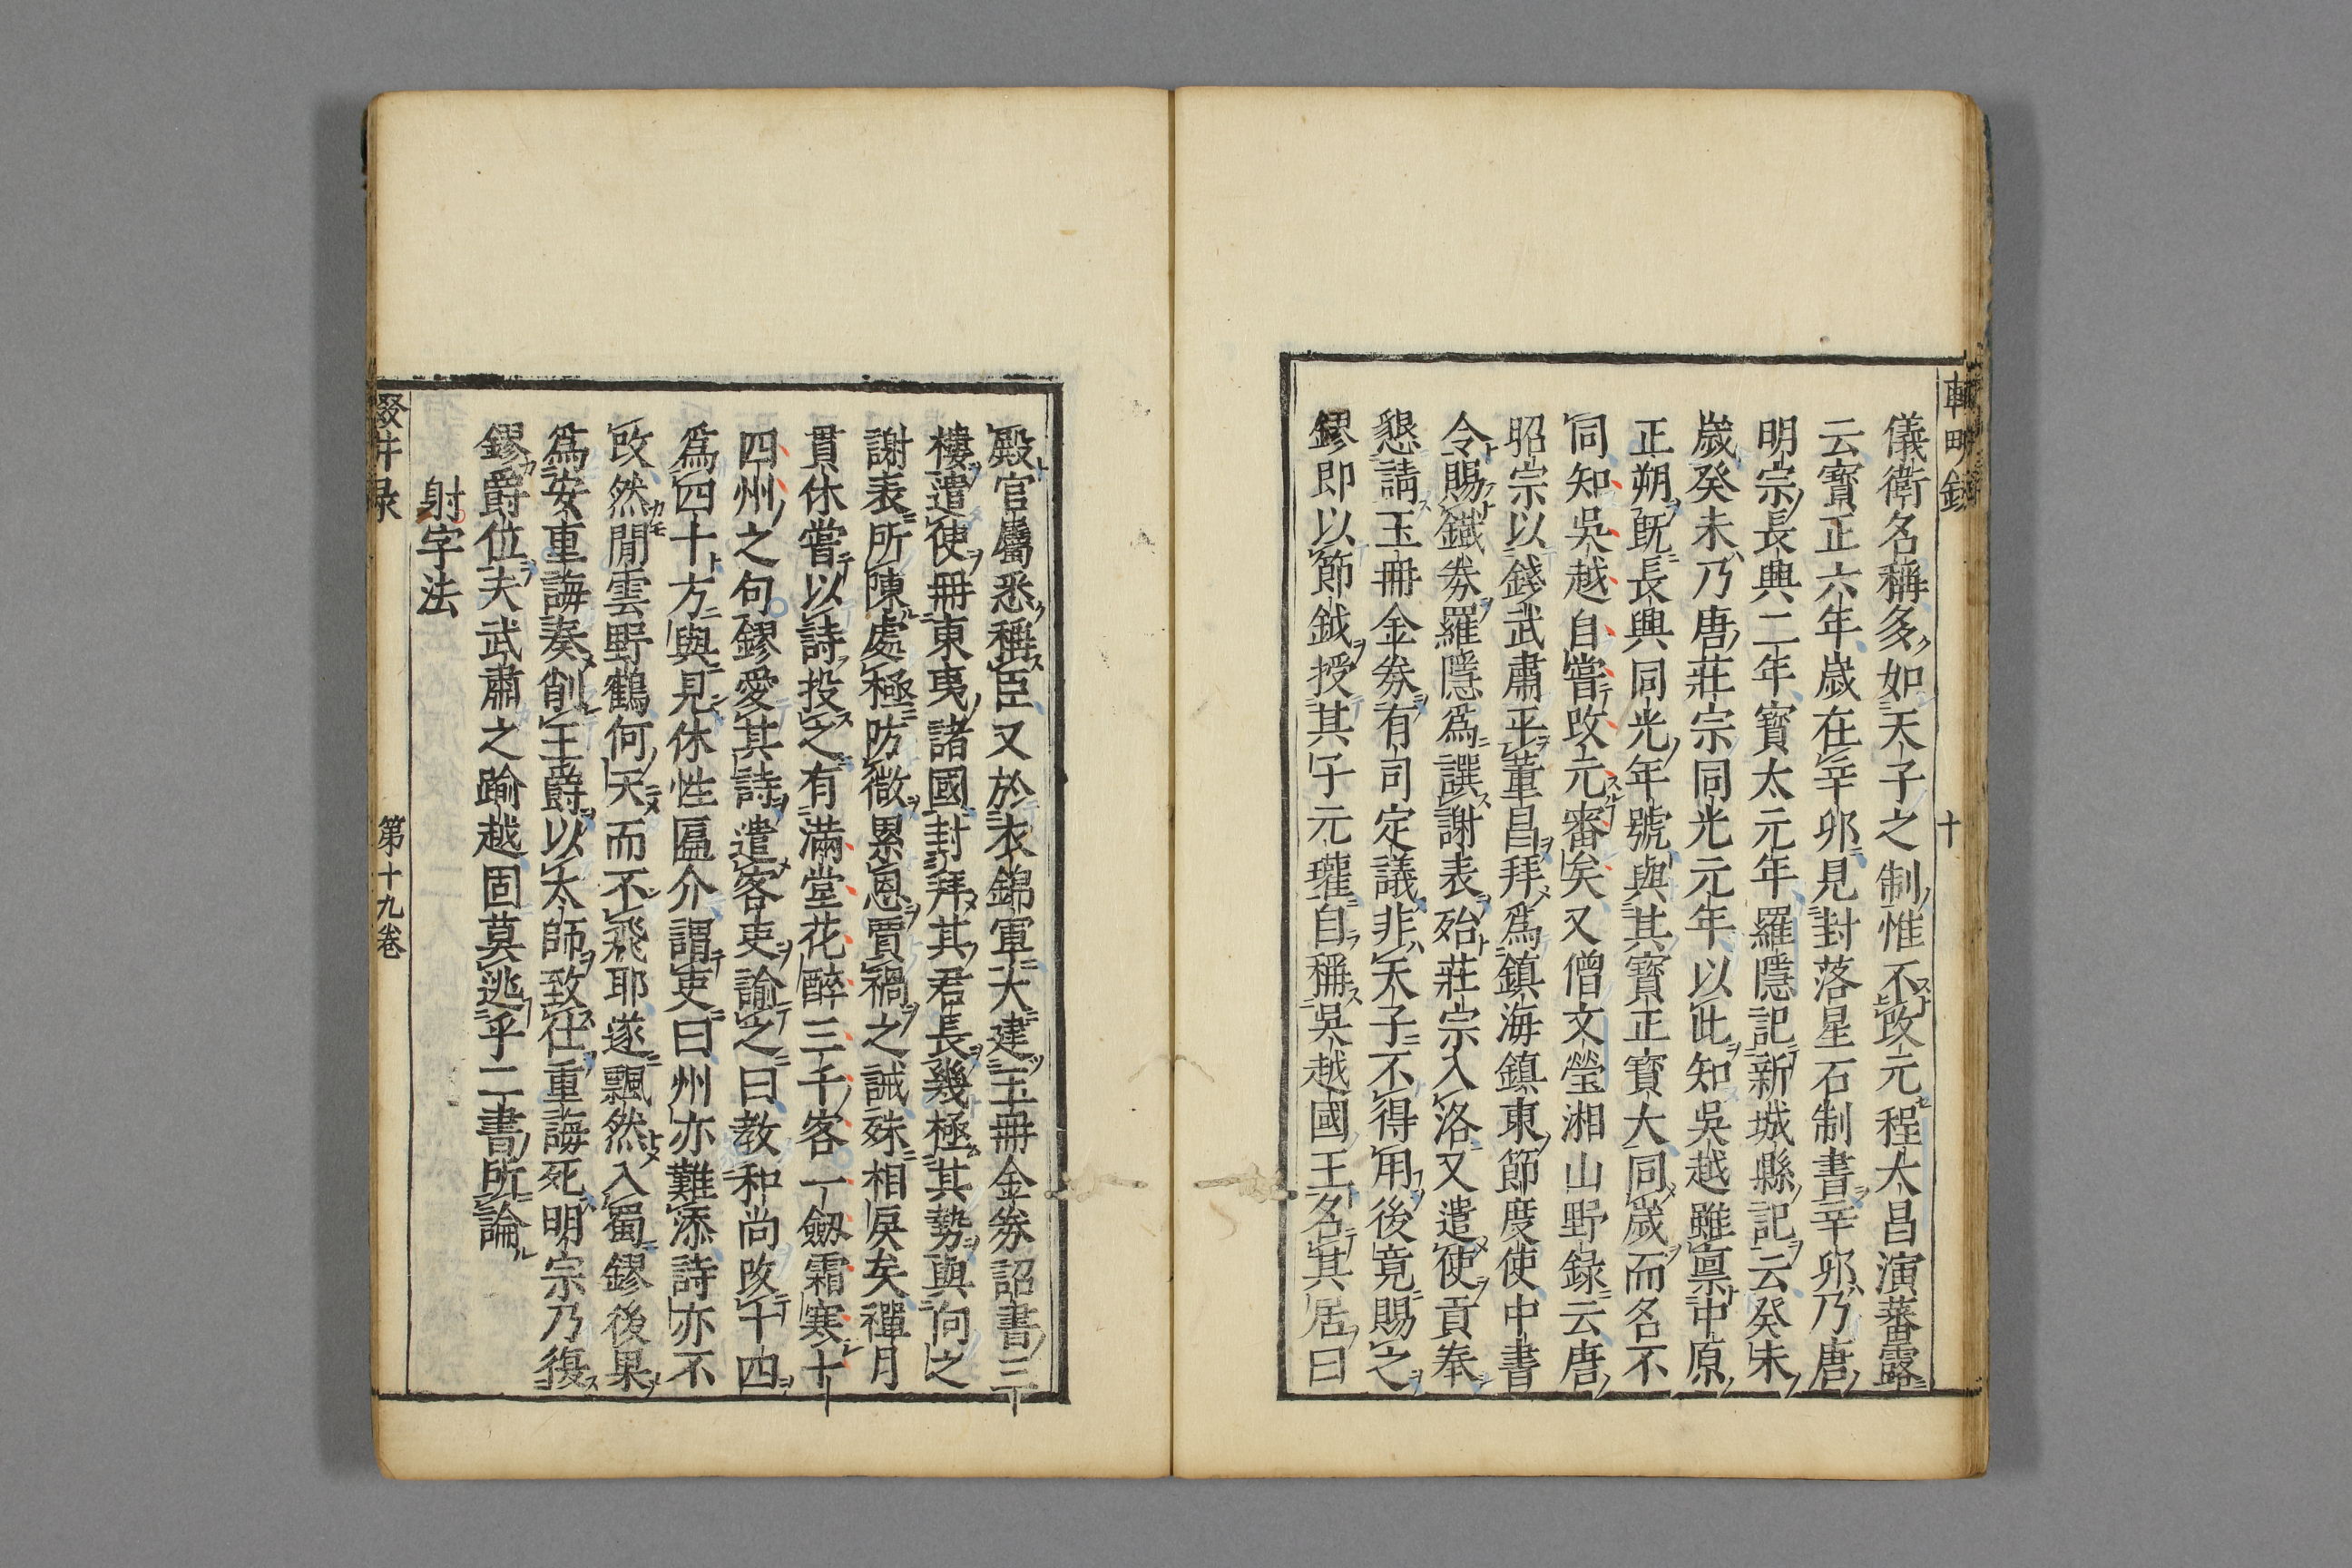 十
儀衛名稱多如天子之制惟不改元程太昌演蕃露
云寳正六年歳在辛卯見封落星石制書辛卯乃唐
明宗長興二年寳太元年羅隱記新城縣記云癸未
歳癸未乃唐莊宗同光元年以此知吳越雖禀中原
正朔既長興同光年號與其寳正寳大同歳而名不
同知吳越自嘗改元審矣又僧文瑩湘山野錄云唐
昭宗以錢武肅平董昌拜爲鎮海鎮東節度使中書
令賜鐵券羅隱爲譔謝表殆莊宗入洛又遣使貢奉
懇請玉冊金券有司定議非天子不得用後竟賜之
鏐即以節鉞授其子元瓘自稱吳越國王名其居曰
殿官屬悉稱臣又於衣錦軍大建玉冊金券詔書三
樓遣使冊東夷諸國封拜其君長幾極其勢與向之
謝表所陳處極防微累恩賈禍之誡殊相戾矣禪月
貫休嘗以詩投之有滿堂花醉三千客一劒霜寒十
四州之句鏐愛其詩遣客吏諭之曰教和尚改十四
爲四十方與見休性匾介謂吏曰州亦難添詩亦不
改然閒雲野鶴何天而不飛耶遂飄然入蜀鏐後果
爲安重誨奏削王爵以太師致仕重誨死明宗乃復
鏐爵位夫武肅之踰越固莫逃乎二書所論
射字法
第十九卷